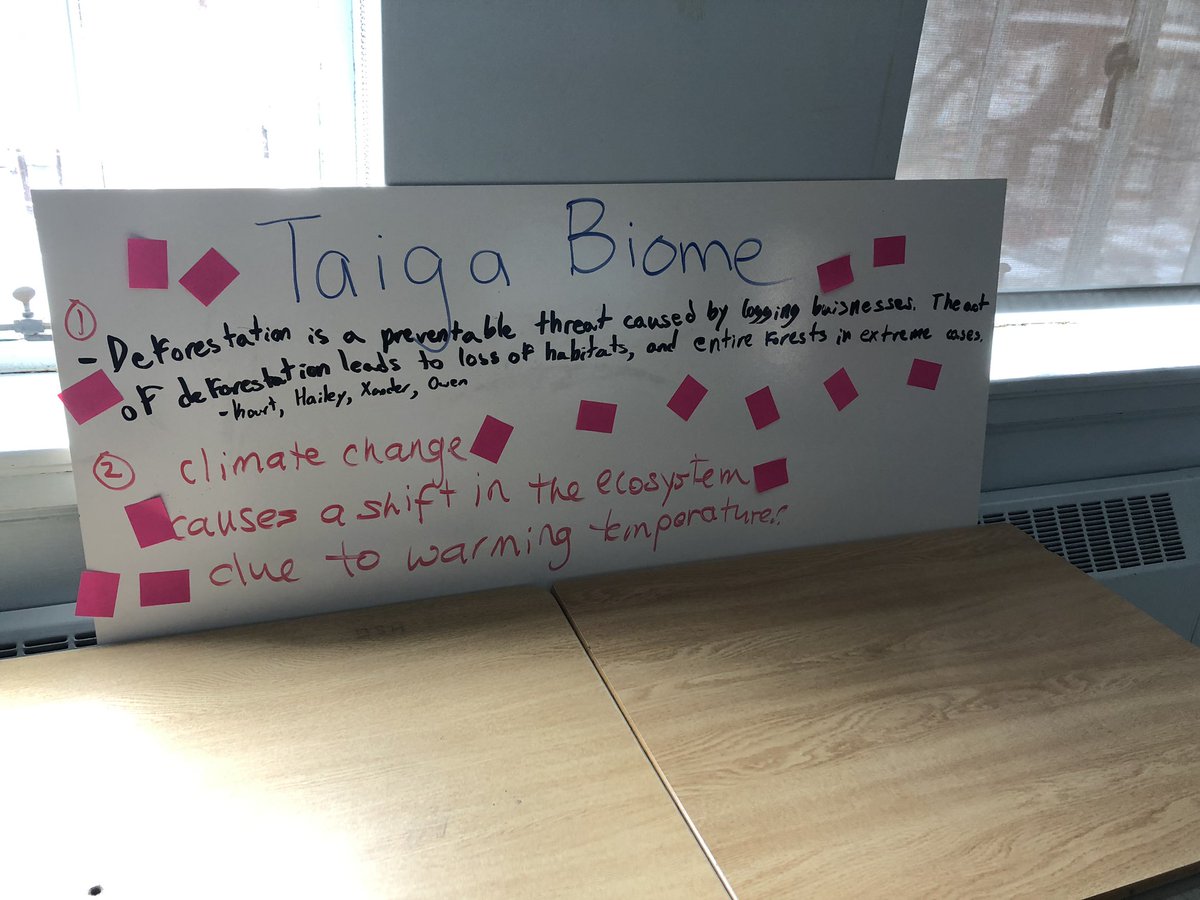 Taiga Biome
①
- Deforestation is a preventable threat caused by logging buisnesses. The act
of deforestation leads to loss of habitats, and entire forests in extreme cases.
- Kourt, Hailey, Xander, Owen
② climate change
causes a shift in the ecosystem
due to warming temperatures.